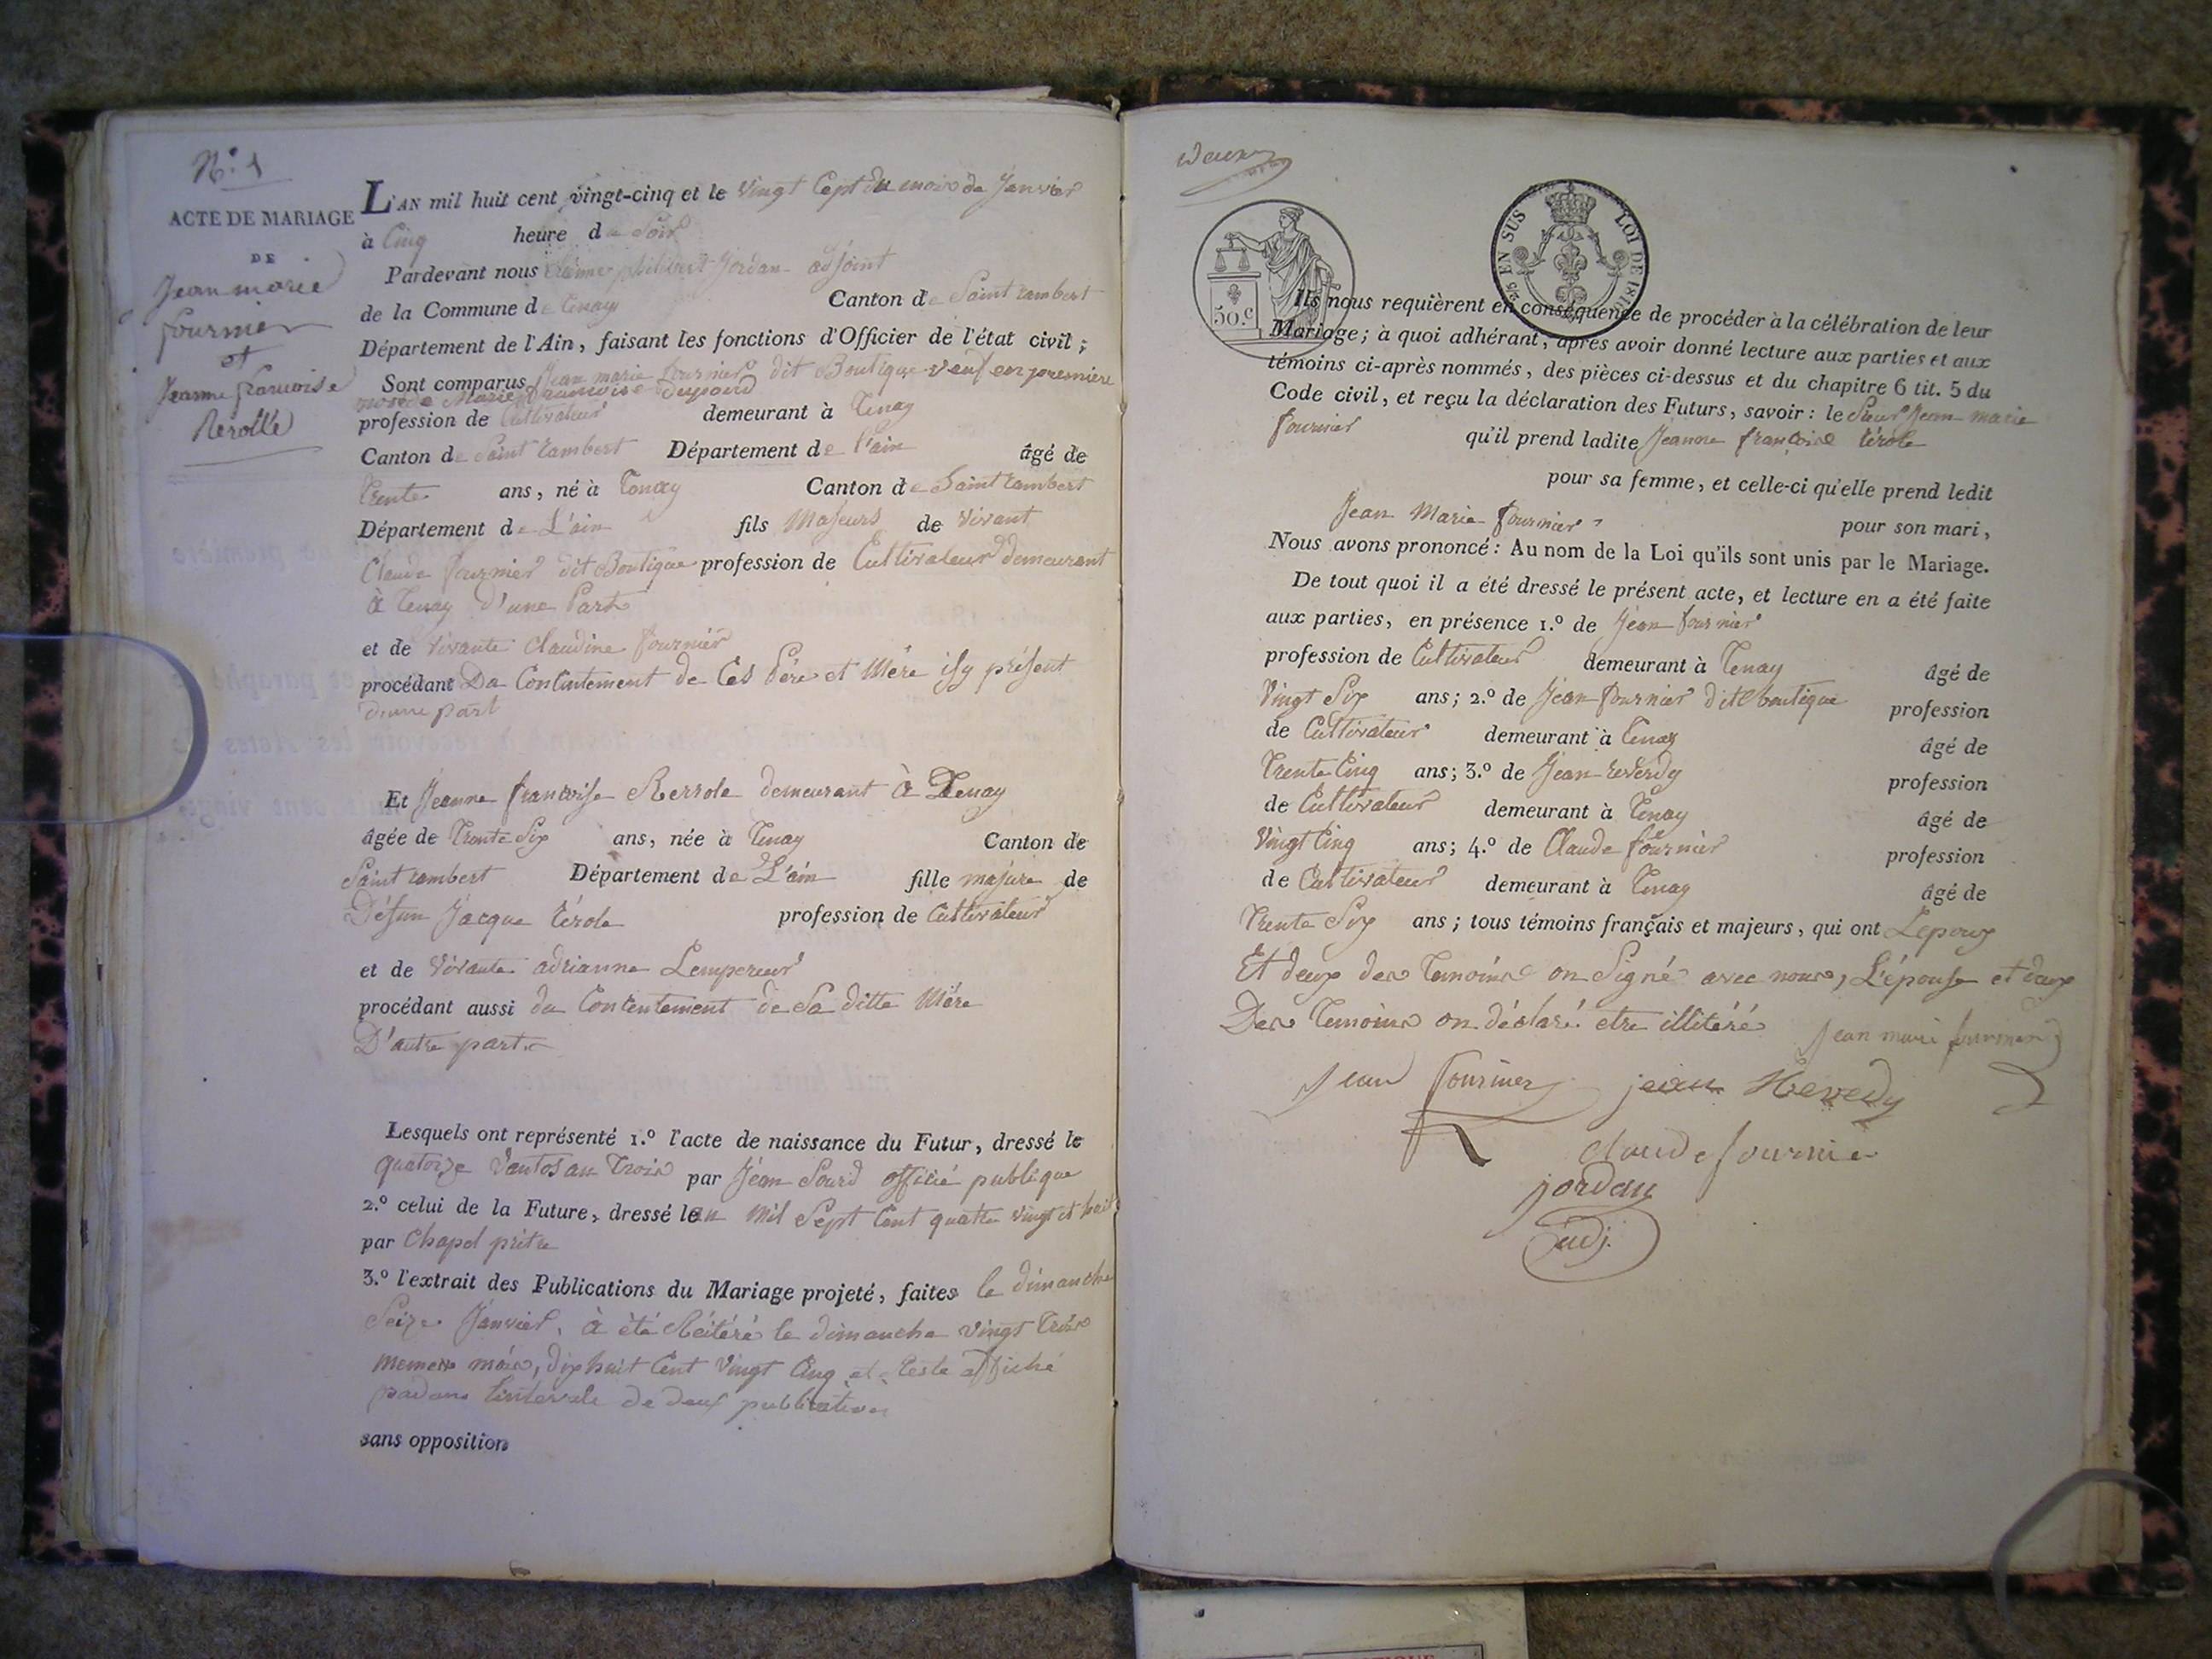 N.º 1
ACTE DE MARIAGE
DE
Jean marie
fournier
et
Jeanne francoise
Rerolle
L'AN mil huit cent vingt-cinq et le vingt Cept du mois de Janvier
à Cinq heure du Soir
Pardevant nous philibert Jordan adjoint
de la Commune de Tenay Canton de Saint rambert
Département de l'Ain, faisant les fonctions d'Officier de l'état civil;
Sont comparus Jean marie fournier dit Boutique veuf en premiere
nosse de Marie francoise
profession de Cultivateur demeurant à Tenay
Canton de Saint rambert Département de l'ain âgé de
Trente ans, né à Tenay Canton de Saint rambert
Département de L'ain fils Majeurs de vivant
Claude fournier dit Boutique profession de Cultivateur demeurant
à Tenay d'une Part
et de vivante Claudine fournier
procédant Du Contintement de Ces Père et Mère isy présent
d'une part
Et Jeanne francoise Rerrole demeurant à Tenay
âgée de Trente Six ans, née à Tenay Canton de
Saint rambert Département de L'ain fille majure de
Défun Jacque rérole profession de Cultivateur
et de vivante adrianne Lempereur
procédant aussi du Contentement de Sa ditte Mère
D'autre part.
Lesquels ont représenté 1.º l'acte de naissance du Futur, dressé le
quatorze ventos an trois par Jean Sourd officié publique
2.º celui de la Future, dressé len mil Sept Cent quatre vingt et huit
par Chapel prètre
3.º l'extrait des Publications du Mariage projeté, faites le dimanche
Seize Janvier, à èté Réitéré le dimanche vingt Trois
meme mois, dix huit Cent vingt Cinq et resté affiché
padans lintervale de deux publication
sans opposition
Deux
50.C
2/5 EN SUS LOI DE 181
Ils nous requièrent en conséquence de procéder à la célébration de leur
Mariage; à quoi adhérant, après avoir donné lecture aux parties et aux
témoins ci-après nommés, des pièces ci-dessus et du chapitre 6 tit. 5 du
Code civil, et reçu la déclaration des Futurs, savoir: le Sieur Jean marie
fournier qu'il prend ladite Jeanne francoise rérole
pour sa femme, et celle-ci qu'elle prend ledit
Jean Marie fournier pour son mari,
Nous avons prononcé: Au nom de la Loi qu'ils sont unis par le Mariage.
De tout quoi il a été dressé le présent acte, et lecture en a été faite
aux parties, en présence 1.º de Jean fournier
profession de Cultivateur demeurant à Tenay âgé de
vingt Six ans; 2.º de Jean fournier dit boutique profession
de Cultivateur demeurant à Tenay âgé de
Trente Cinq ans; 3.º de Jean reverdy profession
de Cultivateur demeurant à Tenay âgé de
vingt Cinq ans; 4.º de Claude fournier profession
de Cultivateur demeurant à Tenay âgé de
Trente Six ans; tous témoins français et majeurs, qui ont Lepoux
Et deux des Temoins on Signé avec nous, L'épouse et deux
Des Temoins on déclaré etre illitéré
Jean mari fournier
Jean fournier jean Reverdy
claude fournier
jordan
adj.